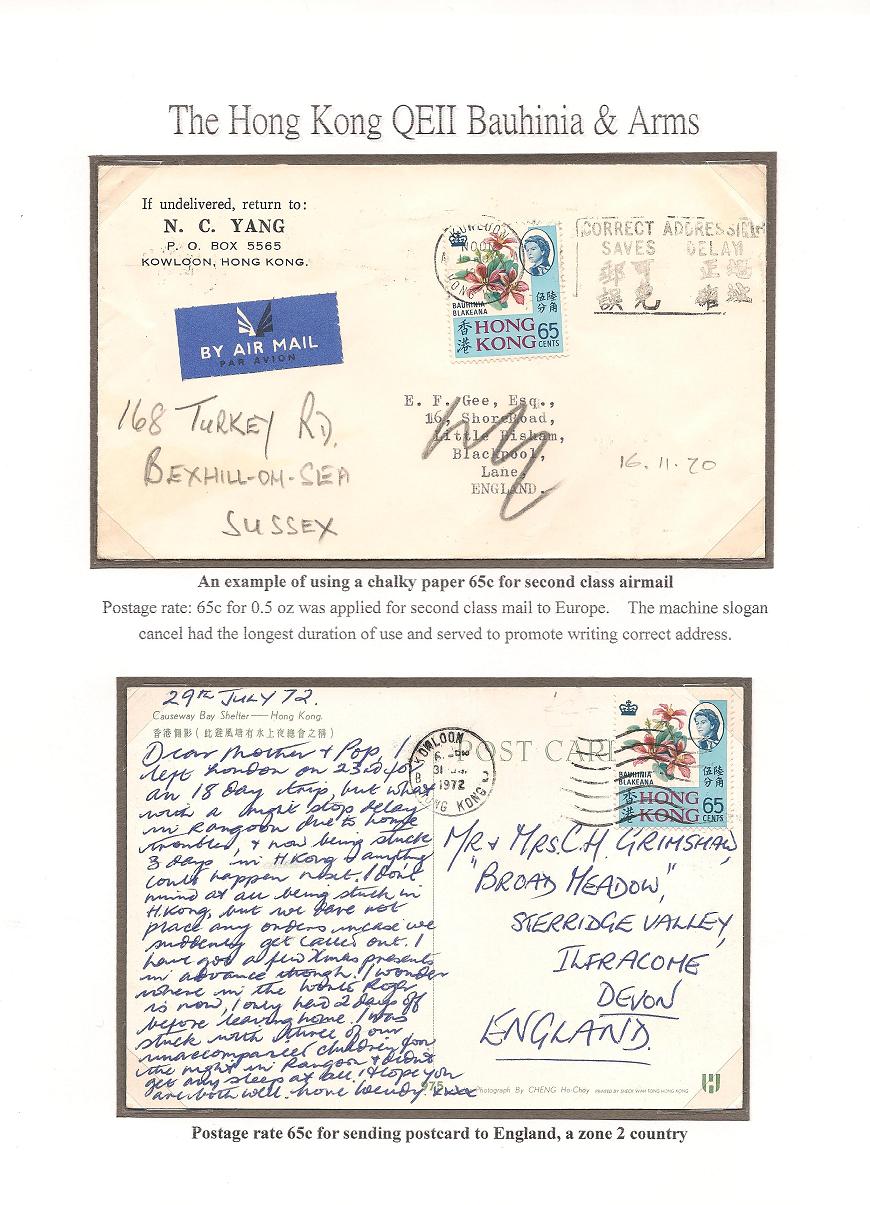 The Hong Kong QEII Bauhinia & Arms
If undelivered, return to:
N. C. YANG
P. O. BOX 5565
KOWLOON, HONG KONG.
KOWLOON
NOON
HONG
CORRECT ADDRESSING
SAVES DELAY
可 正
免
BAUHINIA
BLAKEANA
伍陸
分角
香港
HONG
KONG
65
CENTS
BY AIR MAIL
PAR AVION
168 TURKEY RD.
BEXHILL-ON-SEA
SUSSEX
E. F. Gee, Esq.,
16, Shore Road,
Little Bisham,
Blackpool,
Lane,
ENGLAND.
16.11.70
An example of using a chalky paper 65c for second class airmail
Postage rate: 65c for 0.5 oz was applied for second class mail to Europe. The machine slogan
cancel had the longest duration of use and served to promote writing correct address.
29TH JULY 72.
Causeway Bay Shelter — Hong Kong.
香港 影 (此避風塘有水上夜總會之稱)
Dear Mother & Pop, I
left London on 23rd for
an 18 day trip, but what
with a night stop delay
in Rangoon due to
troubles, & now being stuck
3 days in H.Kong & anything
could happen next. I don't
mind at all being stuck in
H.Kong, but we dare not
place any orders incase we
suddenly get called out. I
have got a few Xmas presents
in advance though. I wonder
where in the World Roger
is now, I only had 2 days off
before leaving home. I was
stuck with three of our
unaccompanied children for
the night in Rangoon & didn't
get any sleep at all. I hope you
are both well. love Wendy. xxx
KOWLOON
B
31
1972
HONG KONG
POST CARD
BAUHINIA
BLAKEANA
伍陸
分角
香港
HONG
KONG
65
CENTS
MR & MRS. C. H. GRIMSHAW,
"BROAD MEADOW,"
STERRIDGE VALLEY,
ILFRACOME
DEVON
ENGLAND.
975
Photograph By CHENG Ho-Choy
PRINTED BY SHECK WAH TONG HONG KONG
Postage rate 65c for sending postcard to England, a zone 2 country